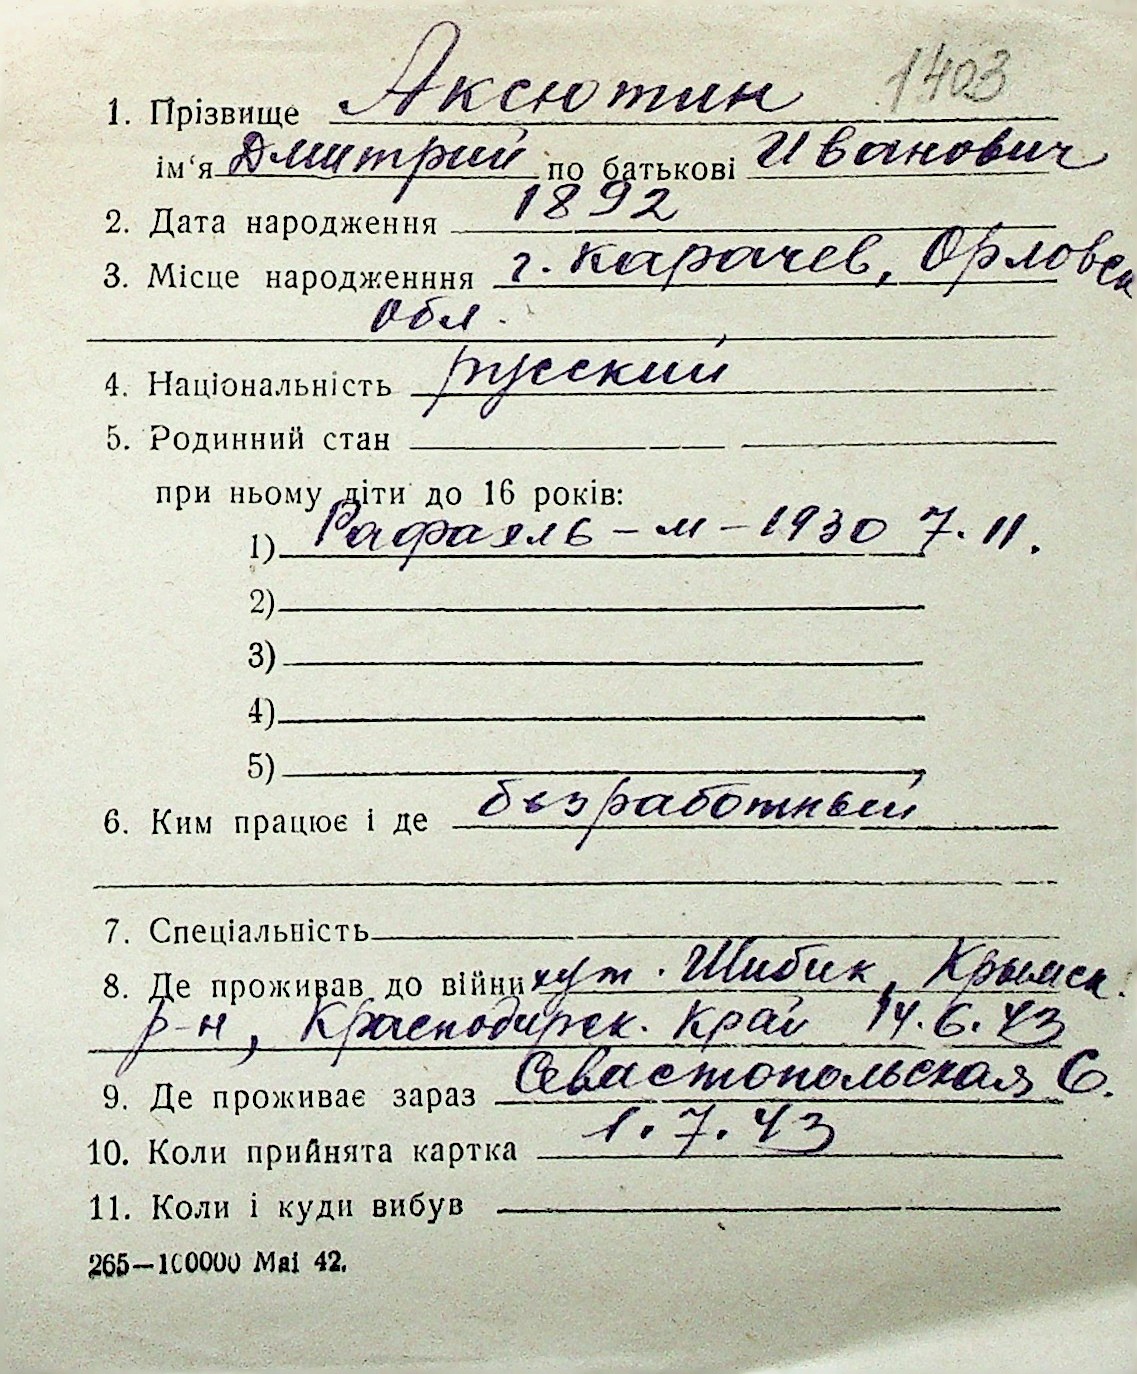 1403
1. Прізвище Аксютин
ім'я Дмитрий по батькові Иванович
2. Дата народження 1892
3. Місце народженння г. Карачев, Орловск
обл.
4. Національність русский
5. Родинний стан
при ньому діти до 16 років:
1) Рафаэль - м - 1930 7.11.
2)
3)
4)
5)
6. Ким працює і де безработный
7. Спеціальність
8. Де проживав до війни хут. Шибик, Крымск.
р-н, Краснодарск. край 14.6.43
9. Де проживає зараз Севастопольская 6.
10. Коли прийнята картка 1.7.43
11. Коли і куди вибув
265—100000 Mai 42.